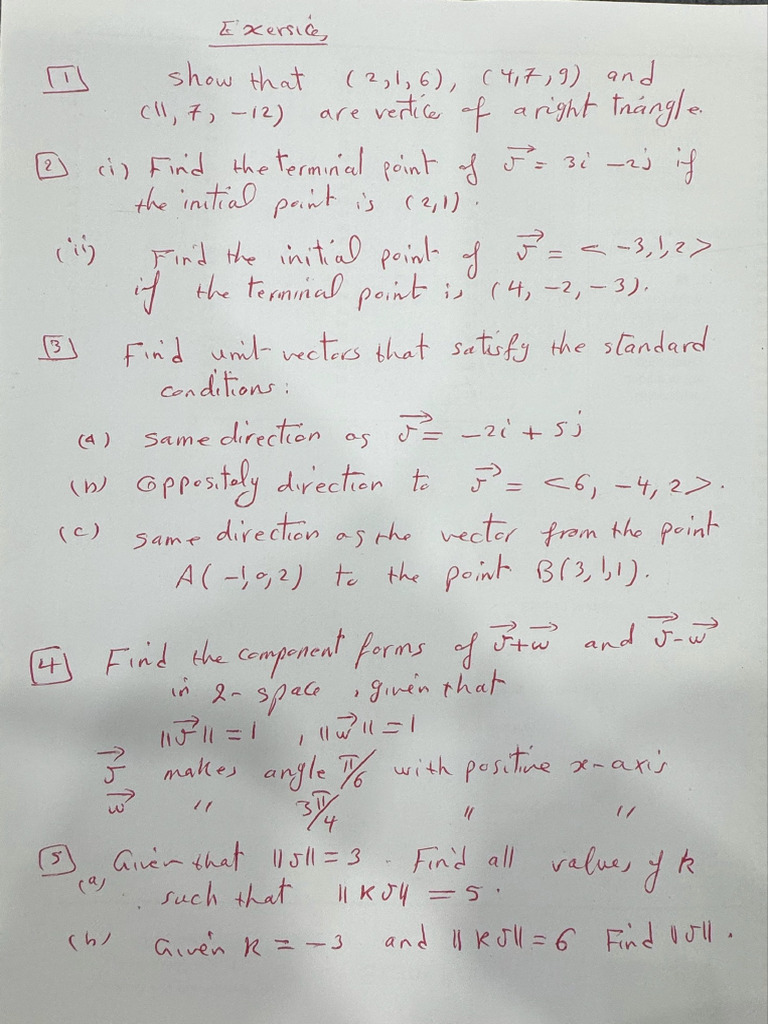 Exersice,
1 show that (2,1,6), (4,7,9) and
(11, 7, -12) are vertice of a right triangle.
2 (i) Find the terminal point of v⃗ = 3i - 2j if
the initial point is (2,1).
(ii) Find the initial point of v⃗ = < -3,1,2>
if the terminal point is (4, -2, -3).
3 Find unit vectors that satisfy the standard
conditions:
(a) same direction as v⃗ = -2i + 5j
(b) oppositely direction to v⃗ = <6, -4, 2>.
(c) same direction as the vector from the point
A(-1,0,2) to the point B(3,1,1).
4 Find the component forms of v⃗+w⃗ and v⃗-w⃗
in 2-space, given that
||v⃗|| = 1, ||w⃗|| = 1
v⃗ makes angle π/6 with positive x-axis
w⃗ " 3π/4 " "
5 Given that ||v|| = 3. Find all values of k
(a) such that ||kv|| = 5.
(b) Given k = -3 and ||kv|| = 6 Find ||v||.